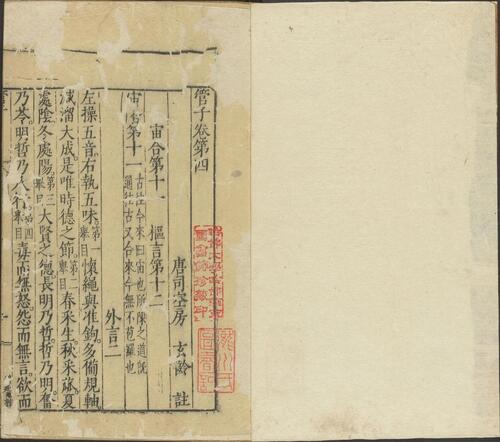 管子卷第四
唐司空房 玄齡 註
宙合第十一 樞言第十二
外言二
宙合第十一 古往今來曰宙也所陳之道既通往古又合來今無不苞羅也
左操五音右執五味第一舉目懷繩與准鉤多備規軸
減溜大成是唯時德之節第二舉目春采生秋采蓏夏
處陰冬處陽第三舉目大賢之德長明乃哲哲乃明奮
乃苓明哲乃大行第四舉目毒而無怒怨而無言欲而